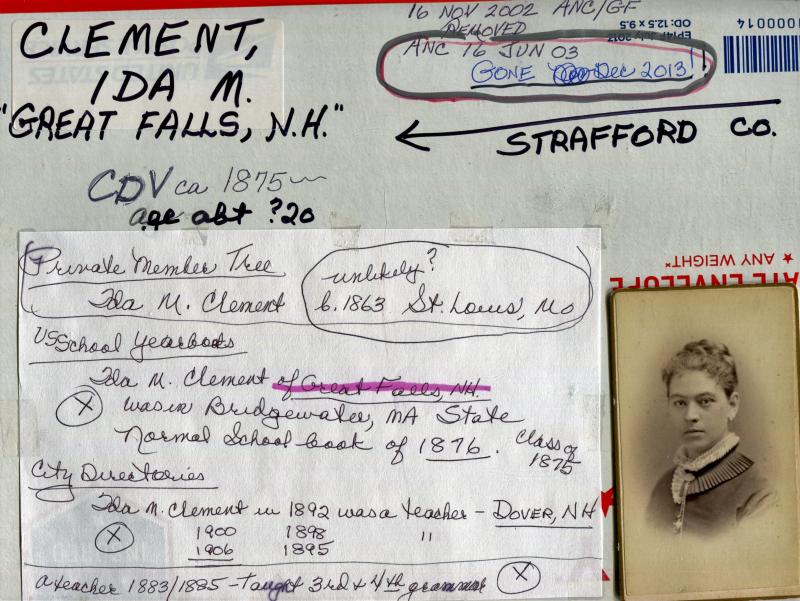 CLEMENT,
IDA M.
"GREAT FALLS, N.H."
16 NOV 2002 ANC/GF
REMOVED
ANC 16 JUN 03
GONE Dec 2013!!
EP14F July 2013
OD: 12.5 x 9.5
0000014
STRAFFORD CO.
CDV ca 1875
age abt ?20
UNITED STATES
★ ANY WEIGHT*
ATE ENVELOPE
Private Member Tree
Ida M. Clement
unlikely?
b. 1863 St. Louis, Mo
US School Yearbooks
Ida M. Clement of Great Falls, NH.
X was in Bridgewater, MA State
Normal School book of 1876. Class of
1875
City Directories
Ida M. Clement in 1892 was a teacher - DOVER, NH
X 1900 1898 "
1906 1895
a teacher 1883/1885 - taught 3rd & 4th grammar X